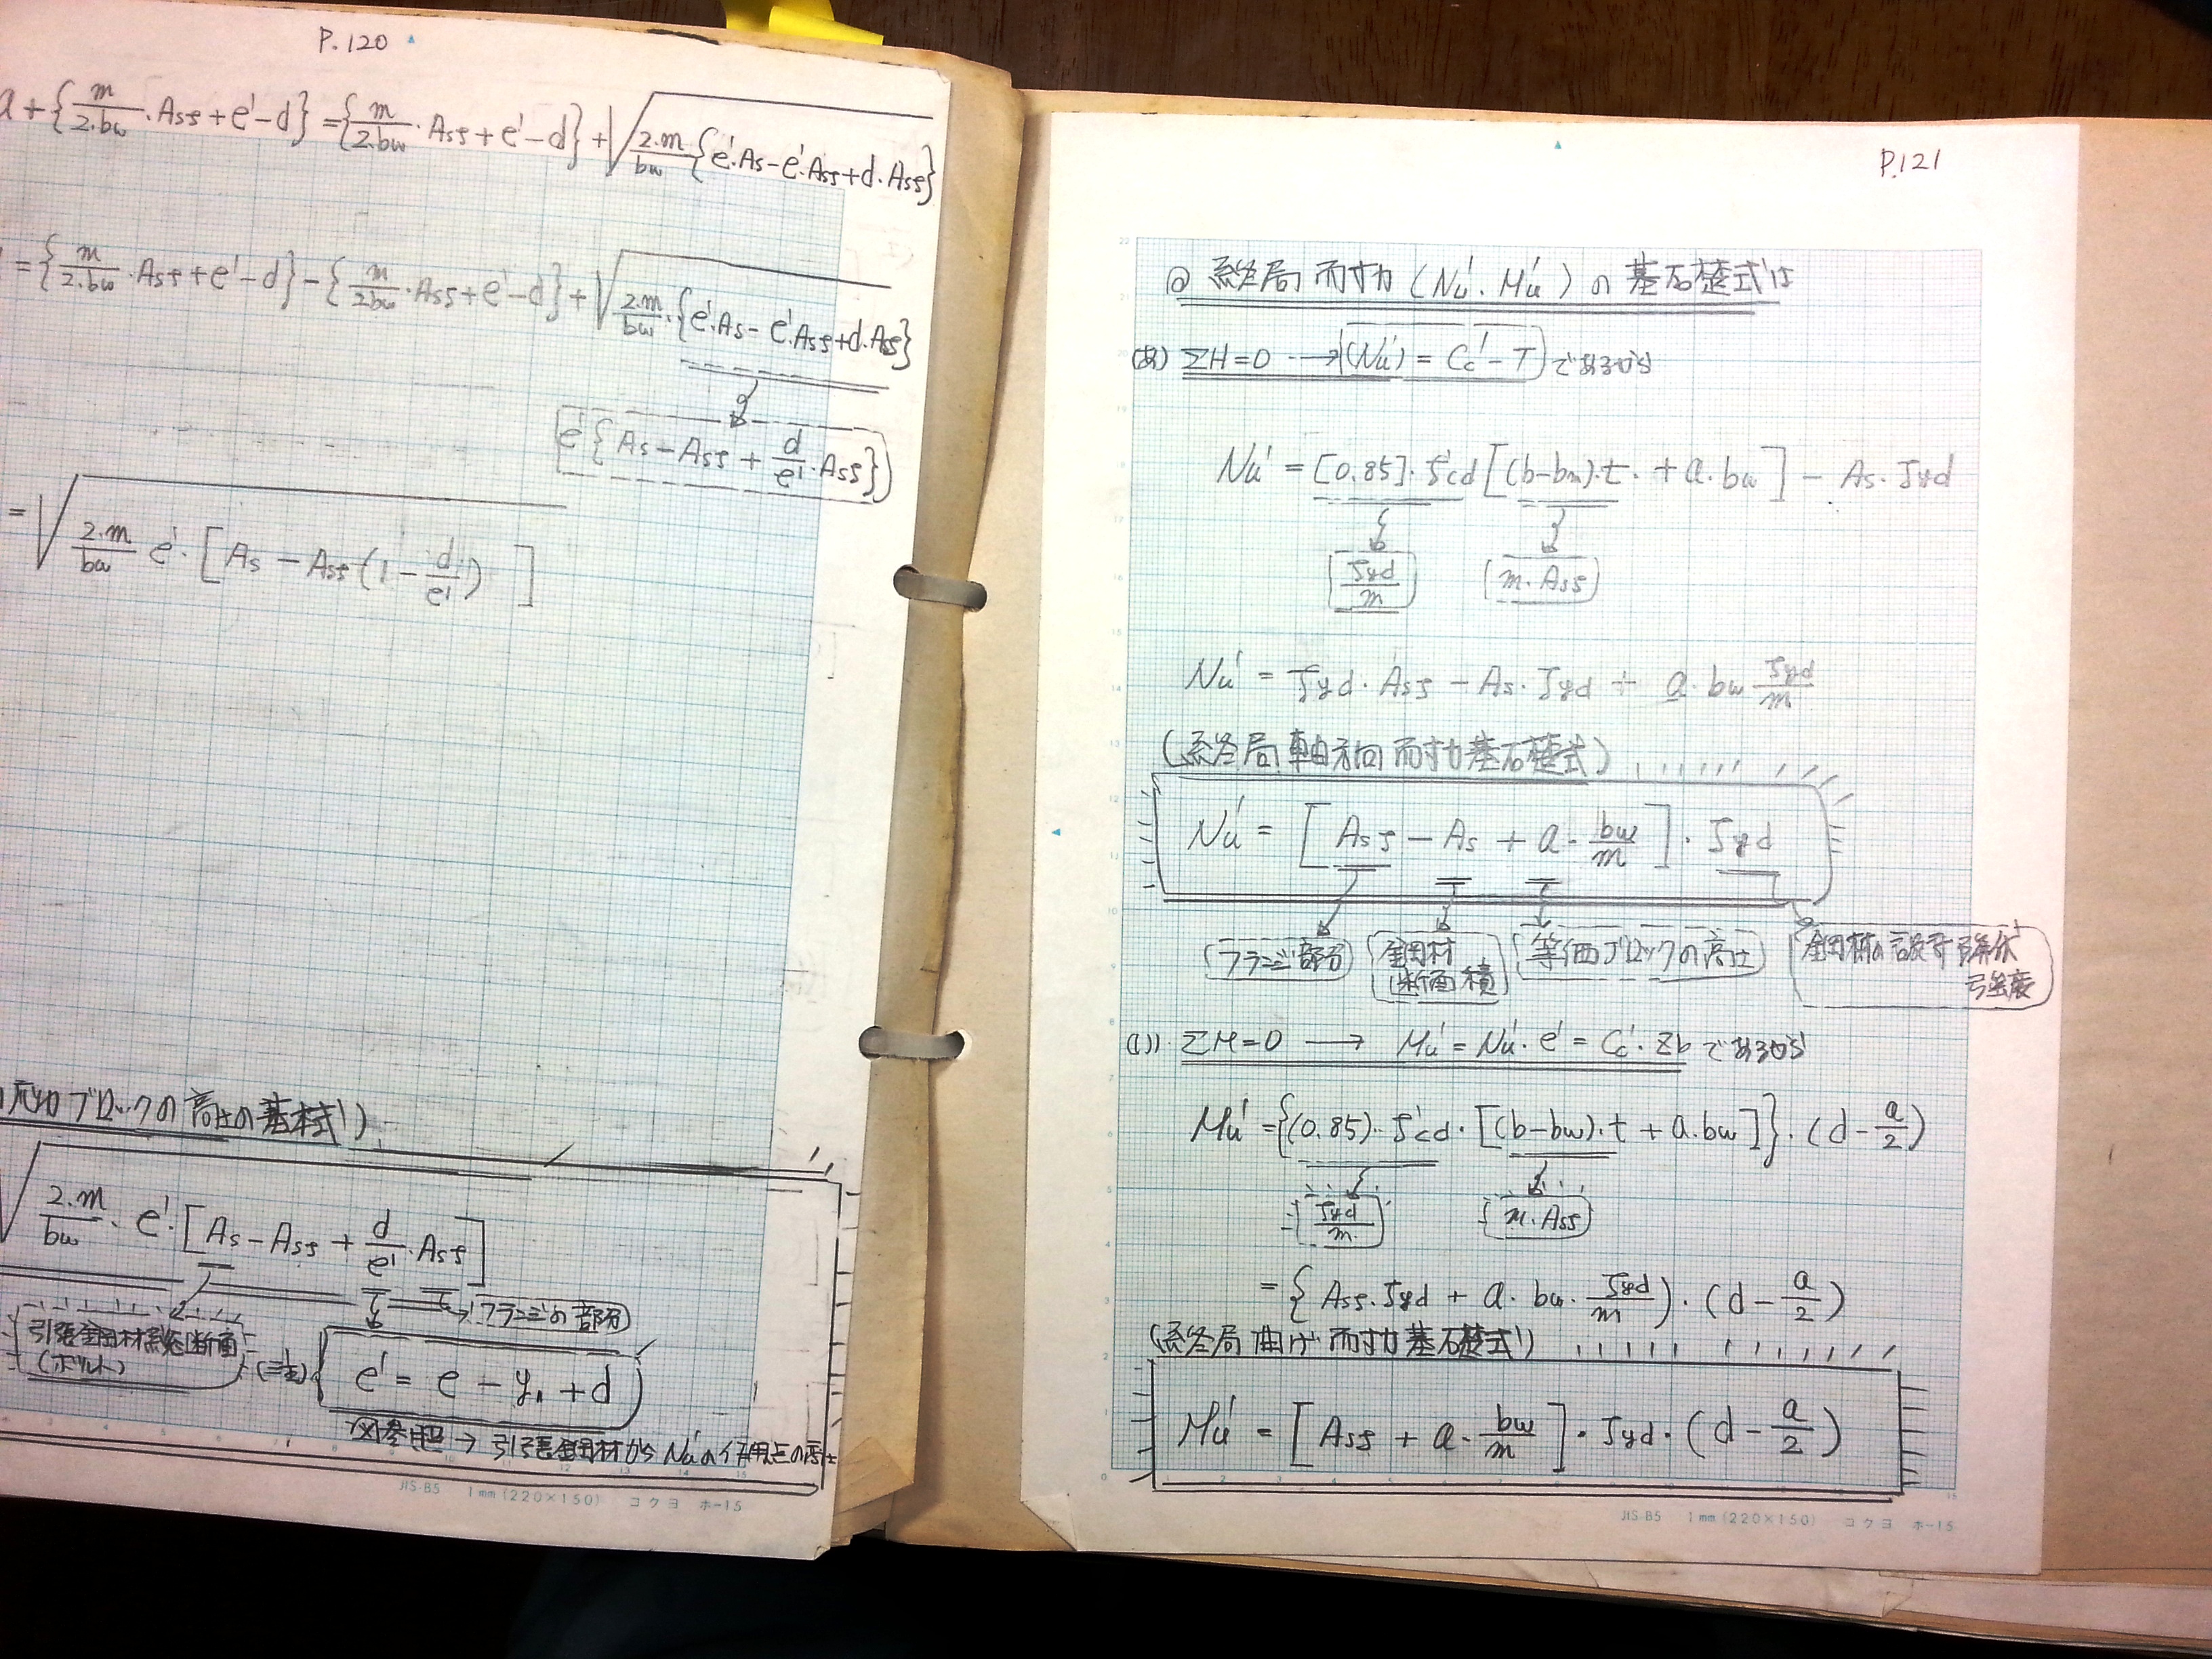 P.120
a + {m/2.bw · Asf + e' - d} = {m/2.bw · Asf + e' - d} + √2.m/bw {e'.As - e'.Asf + d.Asf}
= {m/2.bw · Asf + e' - d} - {m/2bw · Asf + e' - d} + √2.m/bw · {e'.As - e'.Asf + d.Asf}
e' {As - Asf + d/e' · Asf}
= √2.m/bw e' · [As - Asf (1 - d/e')]
応力ブロックの高さの基本式)
√2.m/bw · e' · [As - Asf + d/e' · Asf]
フランジの部分
引張鋼材総断面
(ボルト)
(注) e' = e - y1 + d
図参照 → 引張鋼材から Nu'の作用点の
JIS-B5 1mm(220×150) コクヨ ホ-15
P.121
◎ 終局耐力 (Nu'. Mu') の基礎式は
(あ) ΣH=0 → (Nu') = Cc' - T であるから
Nu' = [0.85]. f'cd [(b-bw).t. + a.bw] - As. fyd
fyd/m
m. Asf
Nu' = fyd. Asf - As. fyd + a. bw fyd/m
(終局軸方向耐力基礎式)
Nu' = [Asf - As + a. bw/m] . fyd
フランジ部分
鋼材断面積
等価ブロックの高さ
鋼材の設計引張降伏強度
(い) ΣM=0 → Mu' = Nu'. e' = Cc'. Zb であるから
Mu' = {(0.85). f'cd. [(b-bw).t + a.bw]}. (d - a/2)
fyd/m
m. Asf
= {Asf. fyd + a. bw. fyd/m). (d - a/2)
(終局曲げ耐力基礎式)
Mu' = [Asf + a. bw/m] . fyd. (d - a/2)
JIS-B5 1mm(220×150) コクヨ ホ-15